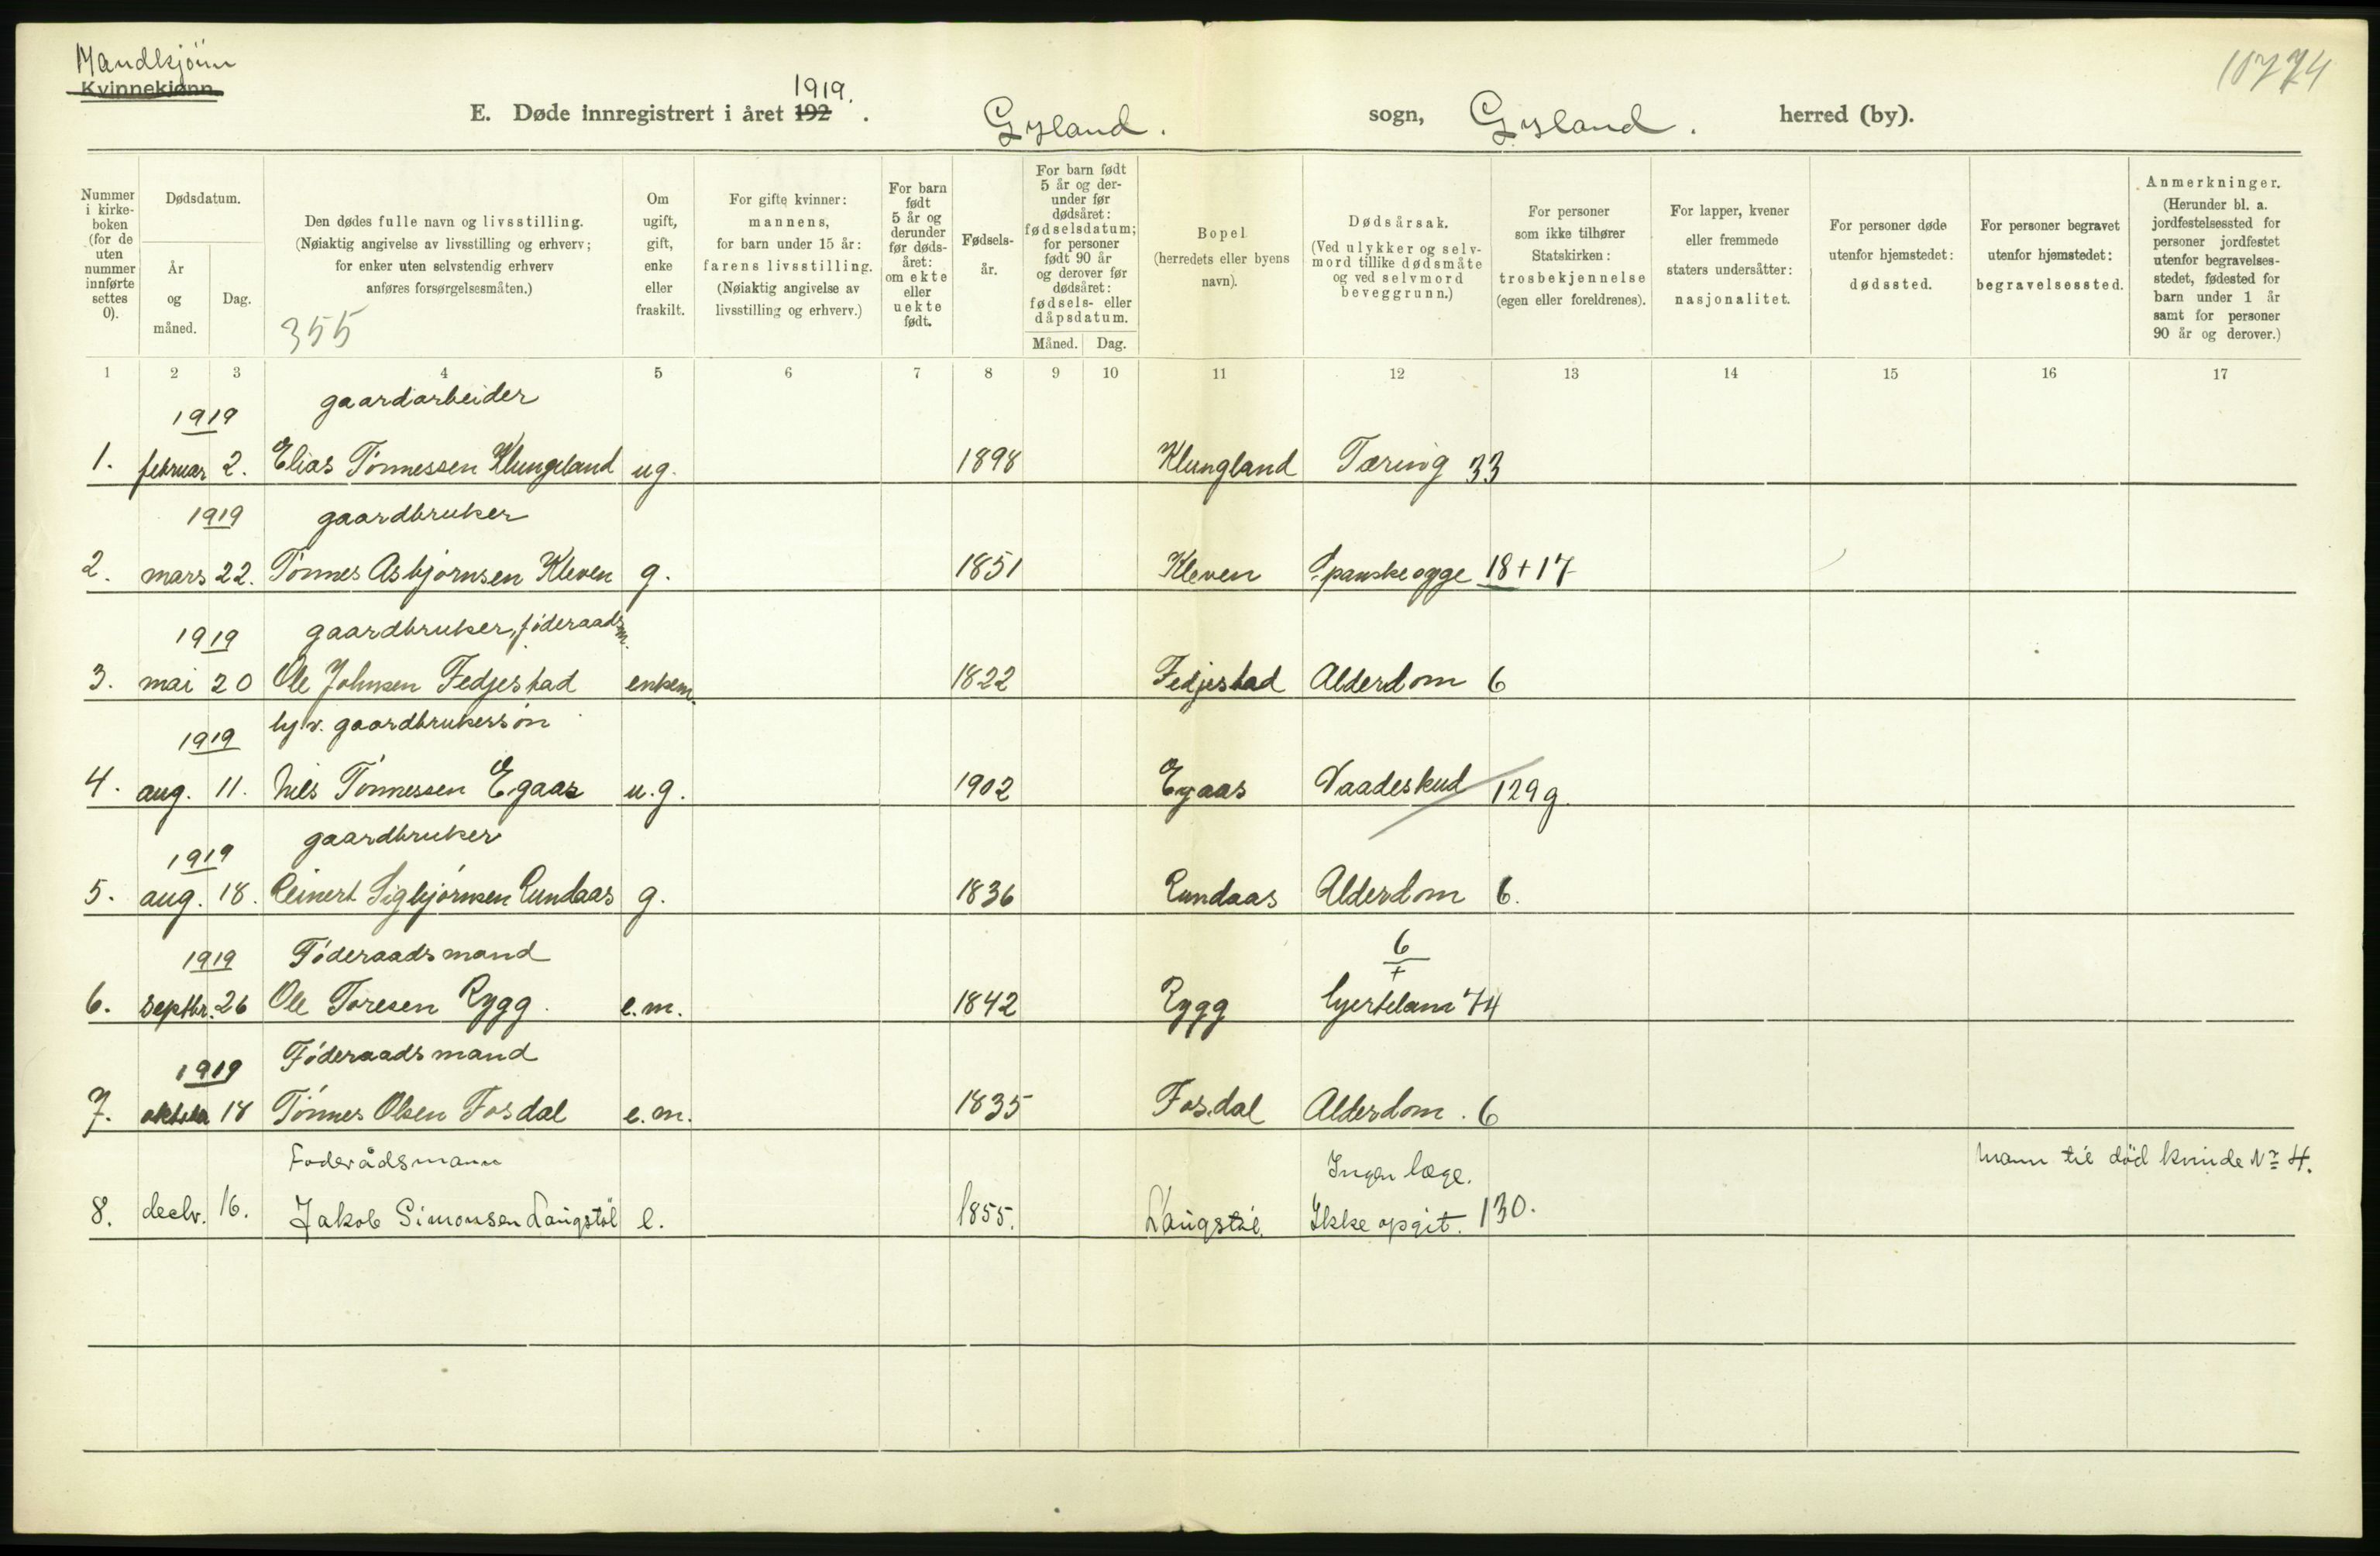 Mandkjönn
Kvinnekjønn.
10774
E. Døde innregistrert i året 192 1919.
Gyland. sogn, Gyland. herred (by).
Nummer i kirkeboken (for de uten nummer innførte settes 0).
Dødsdatum.
År og måned.
Dag.
Den dødes fulle navn og livsstilling.
(Nøiaktig angivelse av livsstilling og erhverv;
for enker uten selvstendig erhverv
anføres forsørgelsesmåten.)
355
Om ugift, gift, enke eller fraskilt.
For gifte kvinner:
mannens,
for barn under 15 år:
farens livsstilling.
(Nøiaktig angivelse av
livsstilling og erhverv.)
For barn født 5 år og derunder før dødsåret: om ekte eller uekte født.
Fødselsår.
For barn født 5 år og derunder før dødsåret: fødselsdatum; for personer født 90 år og derover før dødsåret: fødsels- eller dåpsdatum.
Måned. Dag.
Bopel
(herredets eller byens
navn).
Dødsårsak.
(Ved ulykker og selvmord tillike dødsmåte
og ved selvmord
beveggrunn.)
For personer
som ikke tilhører
Statskirken:
trosbekjennelse
(egen eller foreldrenes).
For lapper, kvener
eller fremmede
staters undersåtter:
nasjonalitet.
For personer døde
utenfor hjemstedet:
dødssted.
For personer begravet
utenfor hjemstedet:
begravelsessted.
Anmerkninger.
(Herunder bl. a.
jordfestelsessted for
personer jordfestet
utenfor begravelsesstedet, fødested for
barn under 1 år
samt for personer
90 år og derover.)
1 2 3 4 5 6 7 8 9 10 11 12 13 14 15 16 17
1919 gaardarbeider
1. februar 2. Elias Tönnessen Klungeland ug. 1898 Klungland Tæring 33
1919 gaardbruker
2. mars 22. Tönnes Asbjörnsen Kleven g. 1851 Kleven Spanskesyge 18+17
1919 gaardbruker, föderaadsm.
3. mai 20 Ole Johnsen Fedjestad enkem. 1822 Fedjestad Alderdom 6
1919 hjv. gaardbrukersön
4. aug. 11. Nils Tönnessen Egaas u.g. 1902 Egaas Vaadeskud 129g.
1919 gaardbruker
5. aug. 18. Reinert Sigbjörnsen Lundaas g. 1836 Lundaas Alderdom 6.
1919 Föderaadsmand 6
6. septbr. 26 Ole Toresen Rygg. e.m. 1842 Rygg Hjertelam 74
1919 Föderaadsmand
7. oktober 18 Tönnes Olsen Fosdal e.m. 1835 Fosdal Alderdom. 6
Foderådsmann Ingen læge. Mann til död kvinde No 4.
8. decbr. 16. Jakob Simonsen Laugstöl e. 1855. Laugstöl. Ikke opgit. 130.